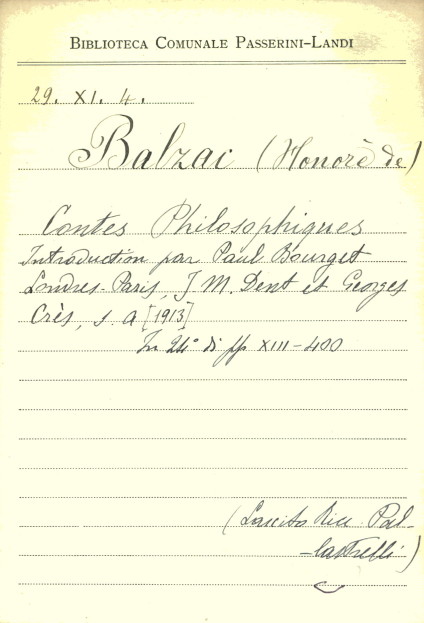 BIBLIOTECA COMUNALE PASSERINI-LANDI
29. XI. 4.
Balzac (Honorè de)
Contes Philosophiques
Introduction par Paul Bourget
Londres-Paris, J. M. Dent et Georges
Crès, s. a [1913]
In 24° di pp XIII-400
(Lascito Ricc. Pal-
-lastrelli)